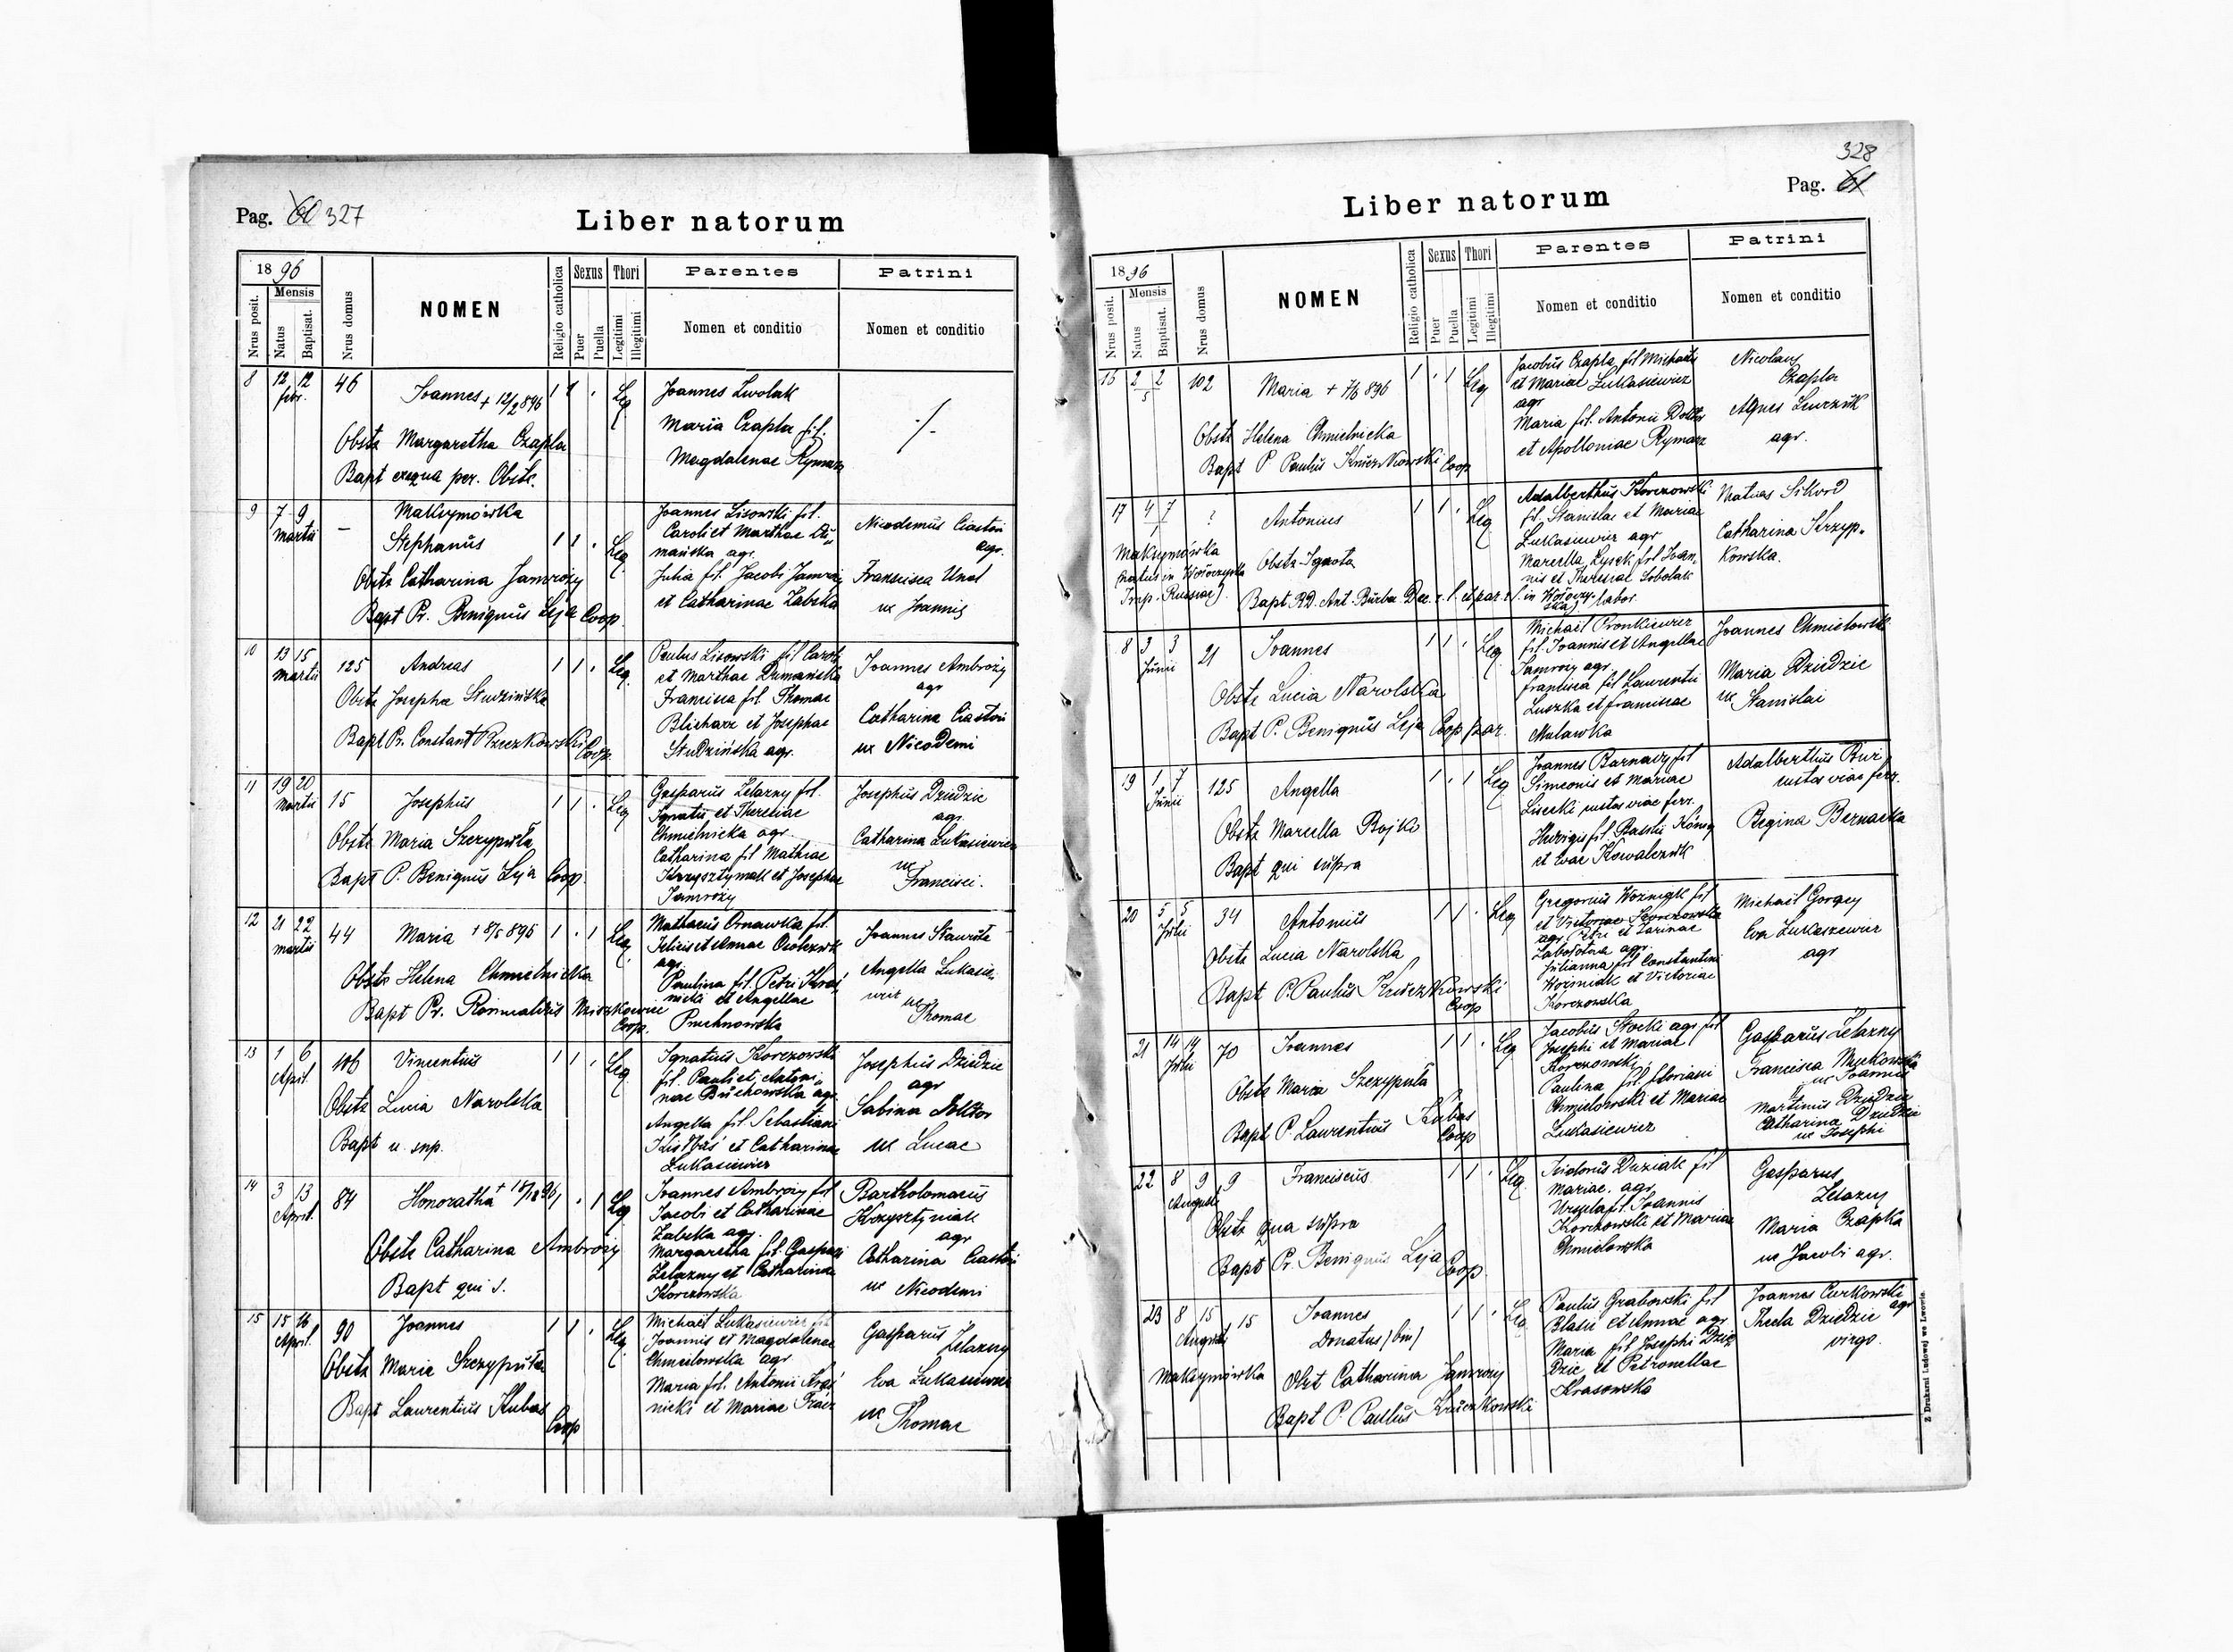 Pag. 60 327
Liber natorum
1896
Nrus posit.
Mensis
Natus
Baptisat.
Nrus domus
NOMEN
Religio catholica
Sexus
Puer
Puella
Thori
Legitimi
Illegitimi
Parentes
Nomen et conditio
Patrini
Nomen et conditio
8 12 12 46 Joannes + 12/2 896 1 1 . Leg Joannes Lwolak
febr.
Maria Czapla fil.
Obstx Margaretha Czapla
Magdalenae Rymarz
Bapt exaqua per. Obstc.
9 7 9 — Maksymówka
Martii
Stephanus 1 1 . Leg
Joannes Lisowski fil.
Caroli et Marthae Du„
mańska agr.
Julia fil. Jacobi Jamroży
et Catharinae Zabska
Nicodemus Ciastoń
agr.
Franscisca Unol
ux Joannis
Obstx Catharina Jamroży
Bapt Pr. Benignus Leja Coop.
10 13 15 125 Andreas 1 1 . Leg.
Martii
Paulus Lisowski fil Caroli
et Marthae Dumańska
Francisca fil. Thomae
Blicharz et Josephae
Studzińska agr.
Joannes Ambroży
agr
Catharina Ciastoń
ux Nicodemi
Obstx Josepha Studzińska
Bapt Pr. Constant Rzeczkowski Coop.
11 19 20 15 Josephus 1 1 . Leg
Martii
Gasparus Żelazny fil.
Ignatii et Theresiae
Chmielnicka agr.
Catharina fil Mathiae
Krzysztyniak et Josephae
Jamroży
Josephus Dziedzic
agr.
Catharina Łukasiewicz
ux
Francisci.
Obstx Maria Szczypuła
Bapt P. Benignus Leja Coop.
12 21 22 44 Maria + 8/5 896 1 . 1 Leg.
Martii
agr.
Paulina fil. Petri Kraś„
nicki et Angellae
Pruchnowska
Angella Łukasie„
ux
Thomae
Obstx Helena Chmielnicka
Bapt Pr. Romualdus
Coop.
13 1 6 106 Vincentius 1 1 . Leg
April.
Ignatius Korczowski
fil. Pauli et Antoni„
nae Buchowska agr.
Angella fil. Sebastiani
et Catharinae
Łukasiewicz
Josephus Dziedzic
agr
Sabina Doktor
ux Lucae
Obstx Lucia Narolska
Bapt u. sup.
14 3 13 84 Honoratha 1 . 1 Leg
April.
Joannes Ambroży fil
Jacobi et Catharinae
Zabska agr.
Margaretha fil. Gaspari
Żelazny et Catharinae
Korczowska
Bartholomaeus
Krzysztyniak
agr
Catharina Ciastoń
ux Nicodemi
Obstx Catharina Ambroży
Bapt qui s.
15 15 16 90 Joannes 1 1 . Leg
April.
Michael Łukasiewicz fil
Joannis et Magdalenae
Chmielowska agr
Maria fil. Antonii Kraś
nicki et Mariae Tracz
Gasparus Żelazny
Eva Łukasiewicz
ux
Thomae
Obstx Maria Szczypuła
Bapt Laurentius Kubas Coop
328
Pag. 61
Liber natorum
1896
Nrus posit.
Mensis
Natus
Baptisat.
Nrus domus
NOMEN
Religio catholica
Sexus
Puer
Puella
Thori
Legitimi
Illegitimi
Parentes
Nomen et conditio
Patrini
Nomen et conditio
16 2 2 102 Maria + 7/6 896 1 . 1 Leg
5
Jacobus Czapla fil Michaelis
et Mariae Łukasiewicz
agr
Maria fil. Antonii Doktor
et Apolloniae Rymarz
Nicolaus
Czapla
Agnes
agr.
Obstx Helena Chmielnicka
Bapt P Paulus Kruczkowski Coop
17 4 7 ? Antonius 1 1 . Leg
Adalberthus Korczowski
fil. Stanislai et Mariae
Łukasiewicz agr
Marcella Łysek fil Joan„
nis et Theresiae Sobolak
labor.
Matias Sikord
Catharina Skrzyp„
kowska.
Maksymówka
(natus in Wołoczyska
Imp. Russiae)
Obstx Ignota
Bapt RD. Ant. Burba
8 3 3 21 Joannes 1 1 . Leg.
Junii
Michael Pronkiewicz
fil. Joannis et Angellae
Jamroży agr.
Francisca fil Laurentii
Luszka et Franciscae
Malawka
Joannes Chmielowski
Maria Dziedzic
ux Stanislai
Obstx Lucia Narolska
Bapt P. Benignus Leja Coop par.
19 1 7 125 Angella 1 . 1 Leg
Junii
Joannes Barnacz fil
Simeonis et Mariae
Lisecki custos viae ferr.
Hedvigis fil Basilii König
et Evae Kowalczuk
Adalberthus Bur
custos viae ferr.
Regina Bernacka
Obstx Marcella Bojko
Bapt qui supra
20 5 5 34 Antonius 1 1 . Leg
Julii
Gregorius Woźniak fil
et Victoriae Korczowska
Julianna fil Constantini
Woźniak et Victoriae
Korczowska
Michael Gorgey
Eva Łukaszewicz
agr
Obstx Lucia Narolska
Bapt P. Paulus Kruczkowski
Coop
21 14 19 70 Joannes 1 1 . Leg
Julii
Jacobus Stocki agr fil
Josephi et Mariae
Korczowski,
Paulina fil. Floriani
Chmielowski et Mariae
Łukasiewicz
Gasparus Żelazny
Francisca
ux Joannis
Martinus Dziedzic
Catharina Dziedzic
ux Josephi
Obstx Maria Szczypuła
Bapt P. Laurentius Kubas
Coop
22 8 9 9 Franciscus 1 1 . Leg.
Augusti
Isidorus Duziak fil
Mariae. agr.
Ursula fil. Joannis
Korczowski et Mariae
Chmielowska
Gasparus
Żelazny
Maria Czapka
ux Jacobi agr.
Obstx qua supra
Bapt Pr. Benignus Leja Coop.
23 8 15 15 Joannes 1 1 . Leg
August
Donatus (bin)
Paulus Grabowski fil
Blasii et Annae agr
Maria fil Josephi Dzie
dzic et Petronellae
Krasowska
Joannes Curkowski
agr
Thecla Dziedzic
virgo.
Maksymówka
Obst Catharina Jamroży
Bapt P. Paulus Kruczkowski
Z Drukarni Ludowej we Lwowie.